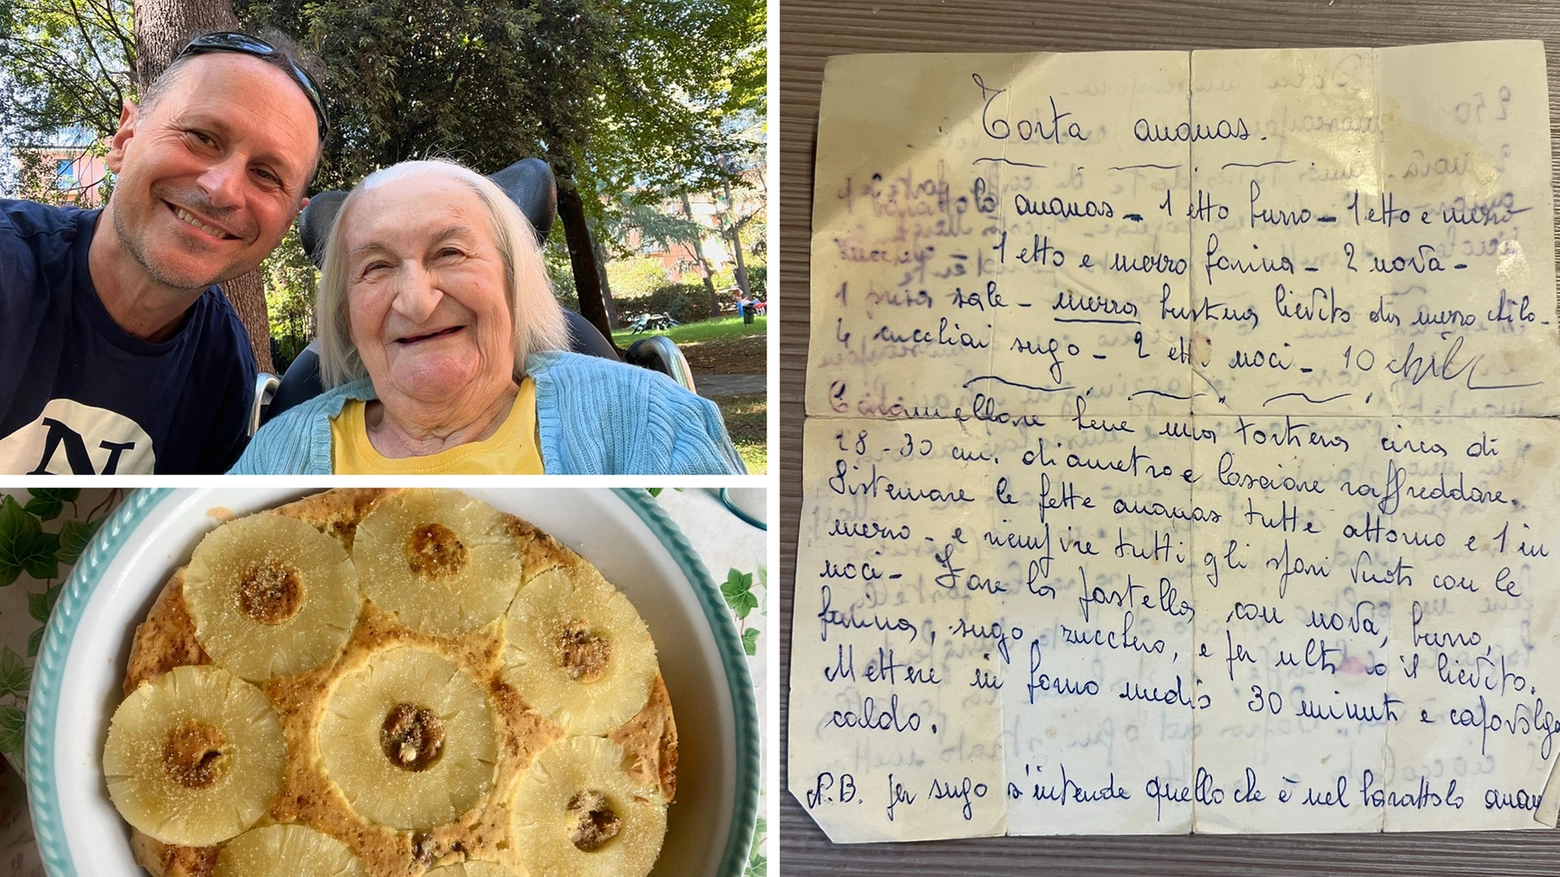 N
Torta ananas.
ananas - 1 etto burro - 1 etto e mezzo
1 etto e mezzo farina - 2 uova -
1 presa sale - mezza bustina lievito da mezzo chilo -
4 cucchiai sugo - 2 etti noci - 10
Caramellare bene una tortiera circa di
28 - 30 cm. diametro e lasciare raffreddare.
Sistemare le fette ananas tutte attorno e 1 in
mezzo - e riempire tutti gli spazi vuoti con le
noci - Fare la pastella con uova, burro,
farina, sugo, zucchero, e per ultimo il lievito.
Mettere in forno medio 30 minuti e capovolgere
caldo.
N.B. per sugo s'intende quello che è nel barattolo ananas